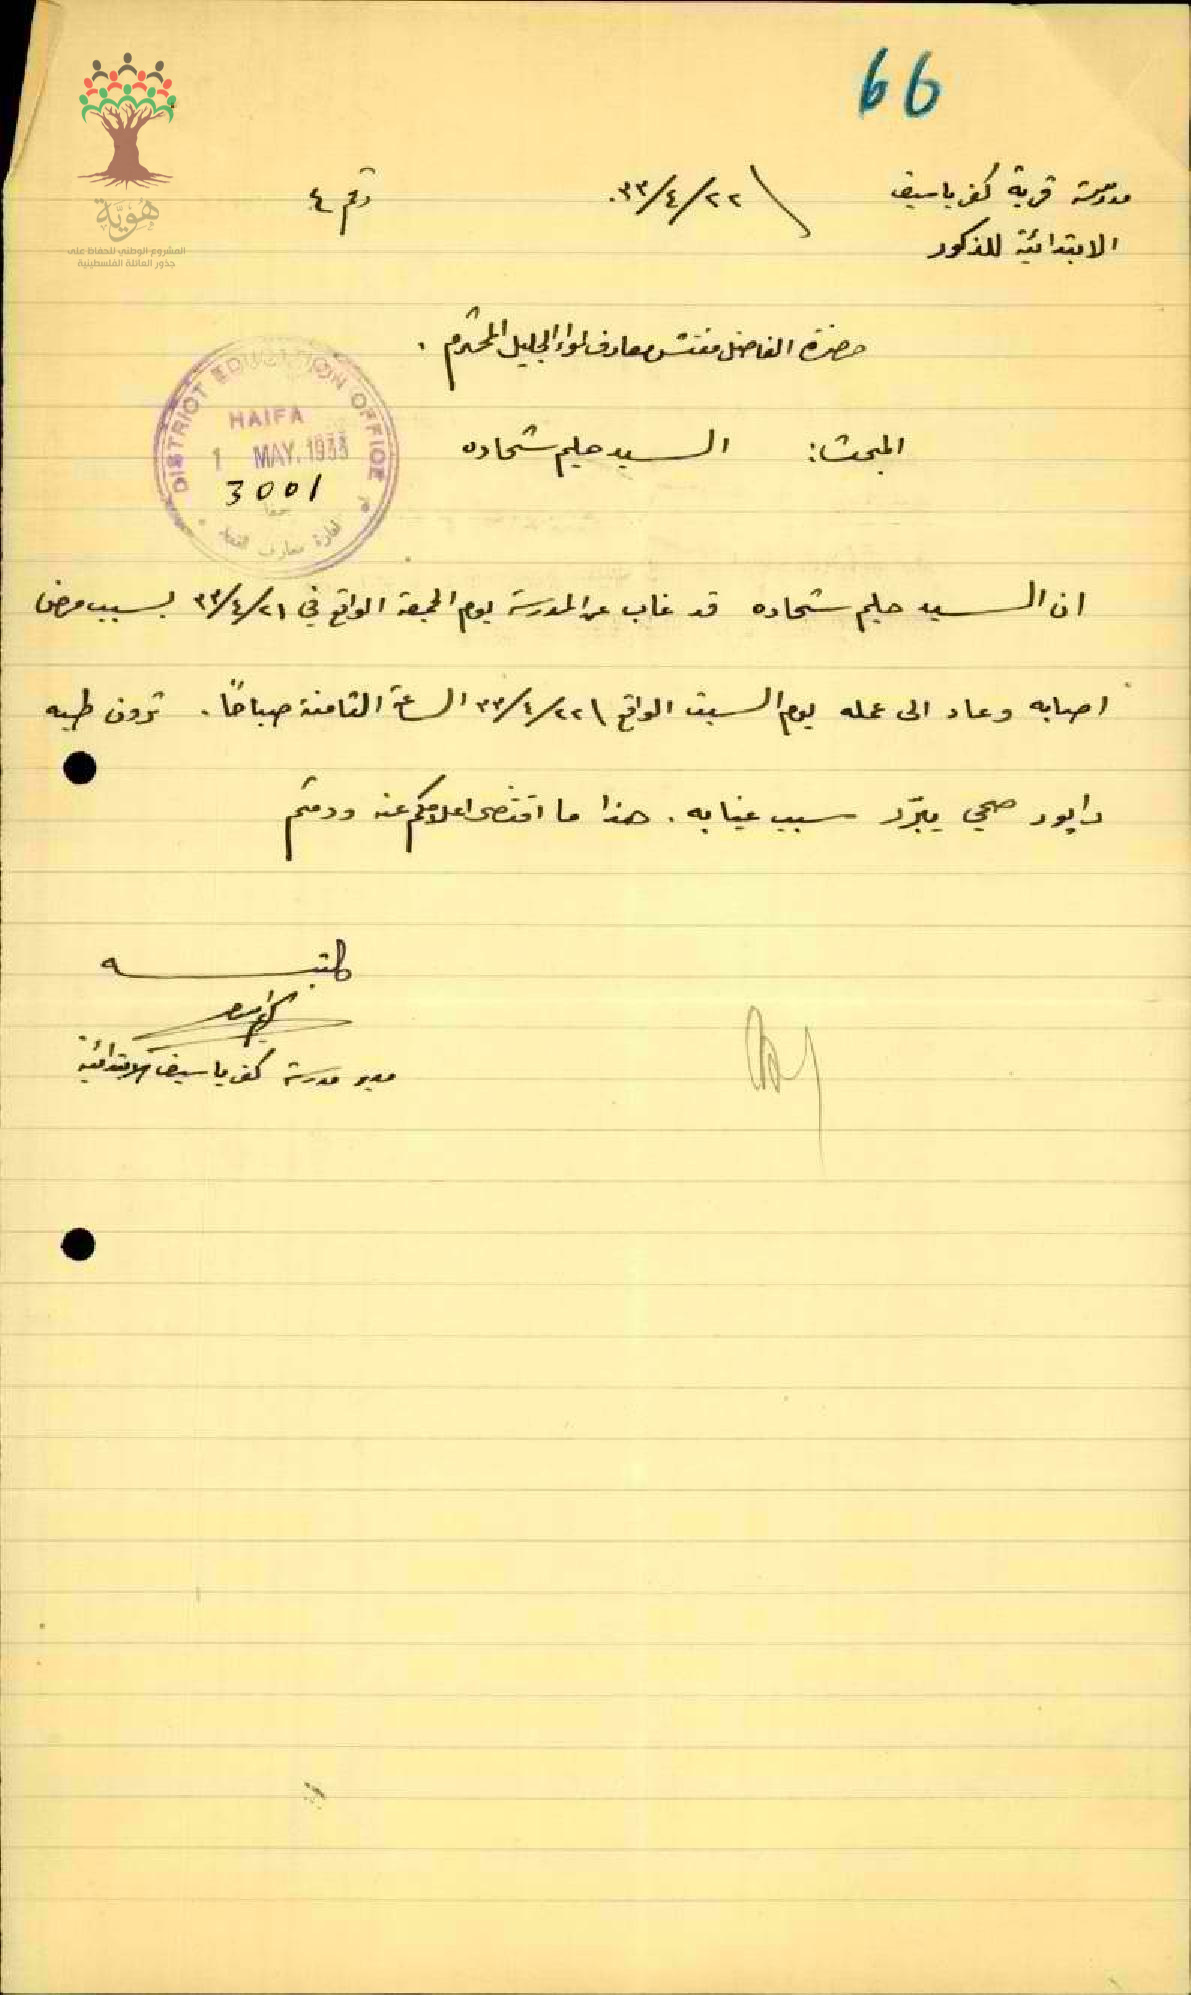 66
مدرسة قرية كفر ياسيف
٢٢/٤/٣٣.
رقم ٤
الابتدائية للذكور
هُوِيَّة
المشروع الوطني للحفاظ على
جذور العائلة الفلسطينية
حضرة الفاضل مفتش معارف لواء الجليل المحترم .
DISTRICT EDUCATION OFFICE
HAIFA
1 MAY. 1933
3001
المبحث: السيد حليم شحاده
ان السيد حليم شحاده قد غاب عن المدرسة يوم الجمعة الواقع في ٢١/٤/٣٣ بسبب مرض
اصابه وعاد الى عمله يوم السبت الواقع ٢٢/٤/٣٣ الساعة الثامنة صباحًا. ترون طيه
رابور صحي يبرّر سبب غيابه. هذا ما اقتضى اعلامكم عنه ودمتم
كاتبه
مدير مدرسة كفر ياسيف الابتدائية